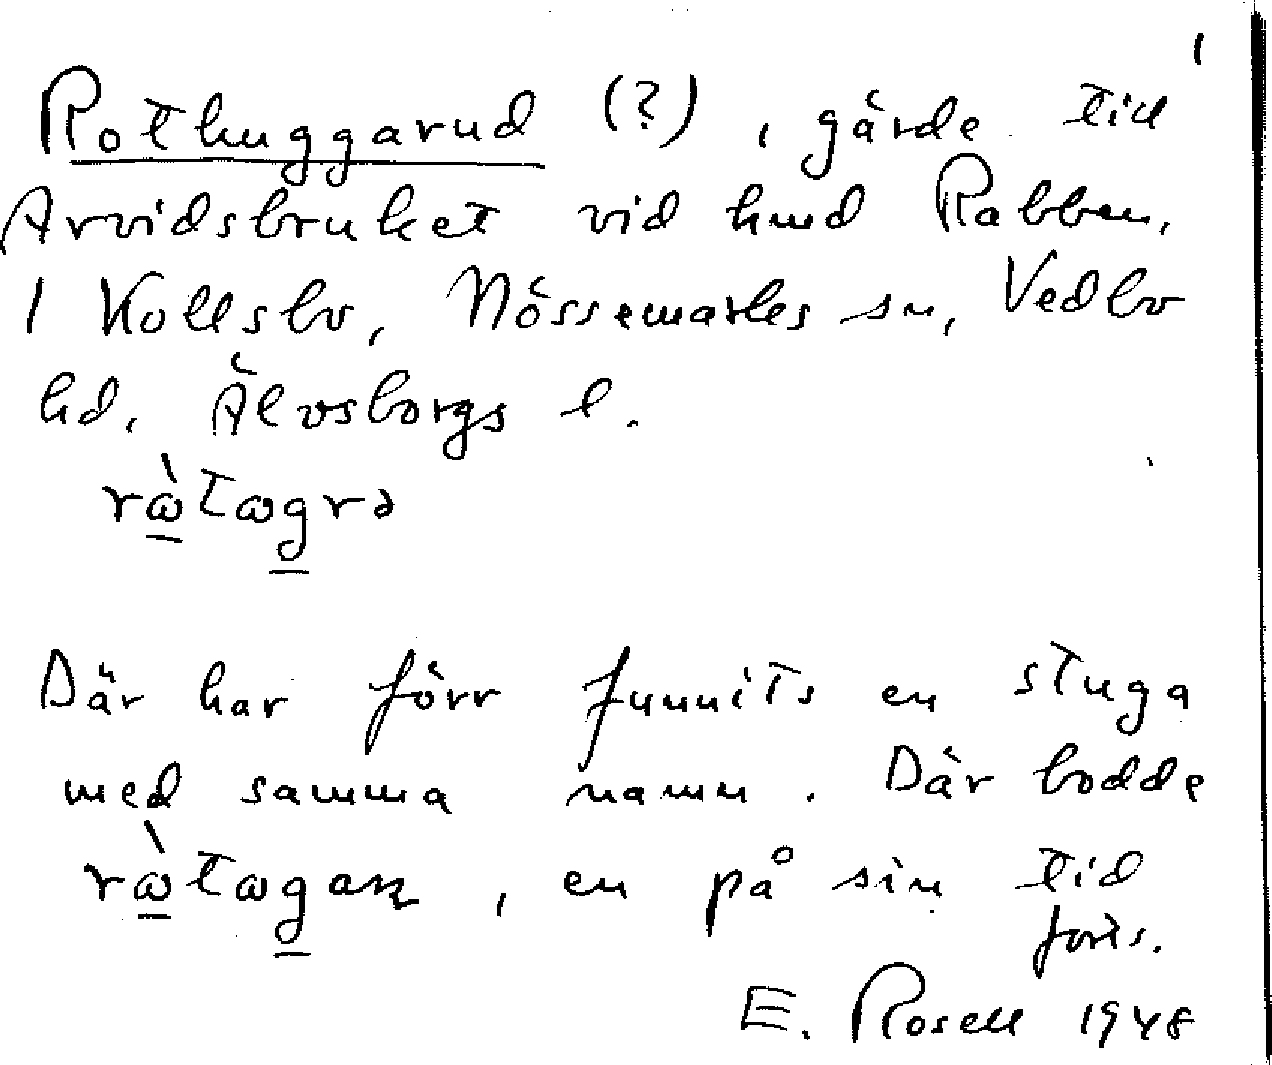 1
Rothuggarud (?), gärde till
Arvidsbruket vid hmd Rabben,
1 Kollsbo, Nössemarks sn, Vedbo
hd. Älvsborgs l.
rὼtωgrə
Där har förr funnits en stuga
med samma namn. Där bodde
rὼtωgan, en på sin tid
forts.
E. Rosell 1948